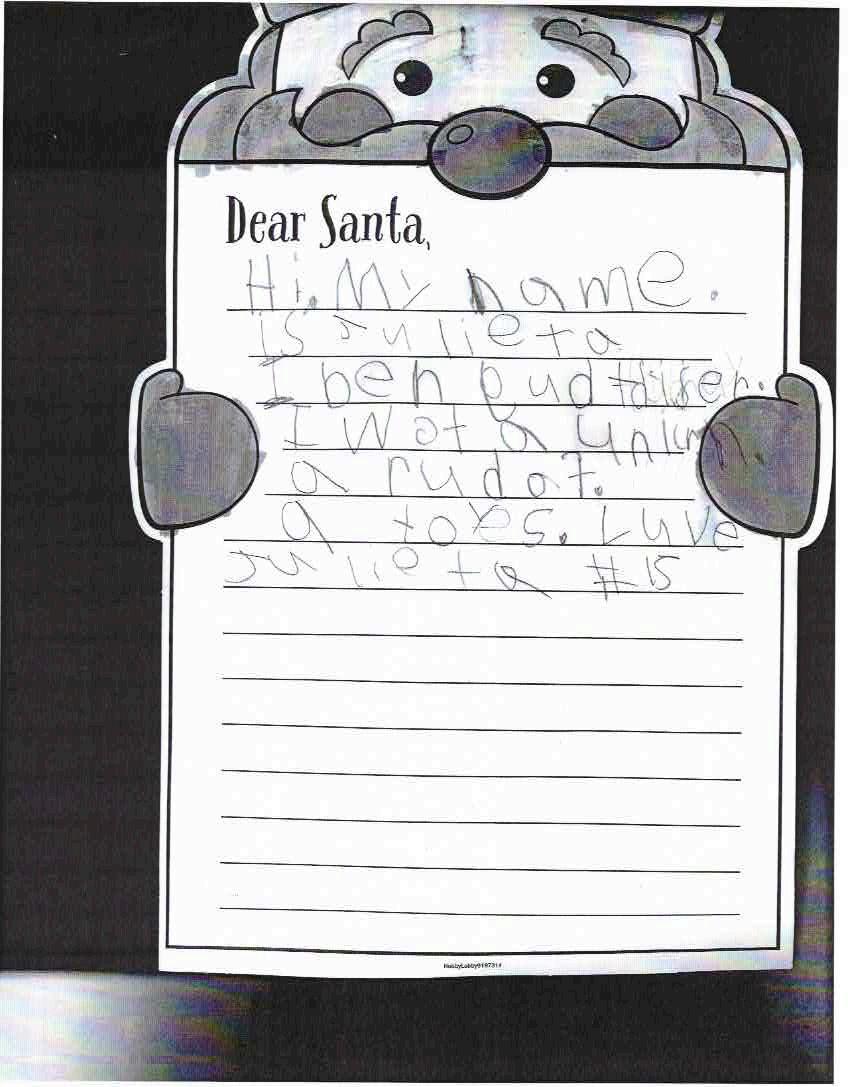 Dear Santa,
Hi. My name.
is Julieta
I ben gud
I wot a unicrn.
a rudot.
a toes. Luve
Julieta #15
HobbyLobby9197314